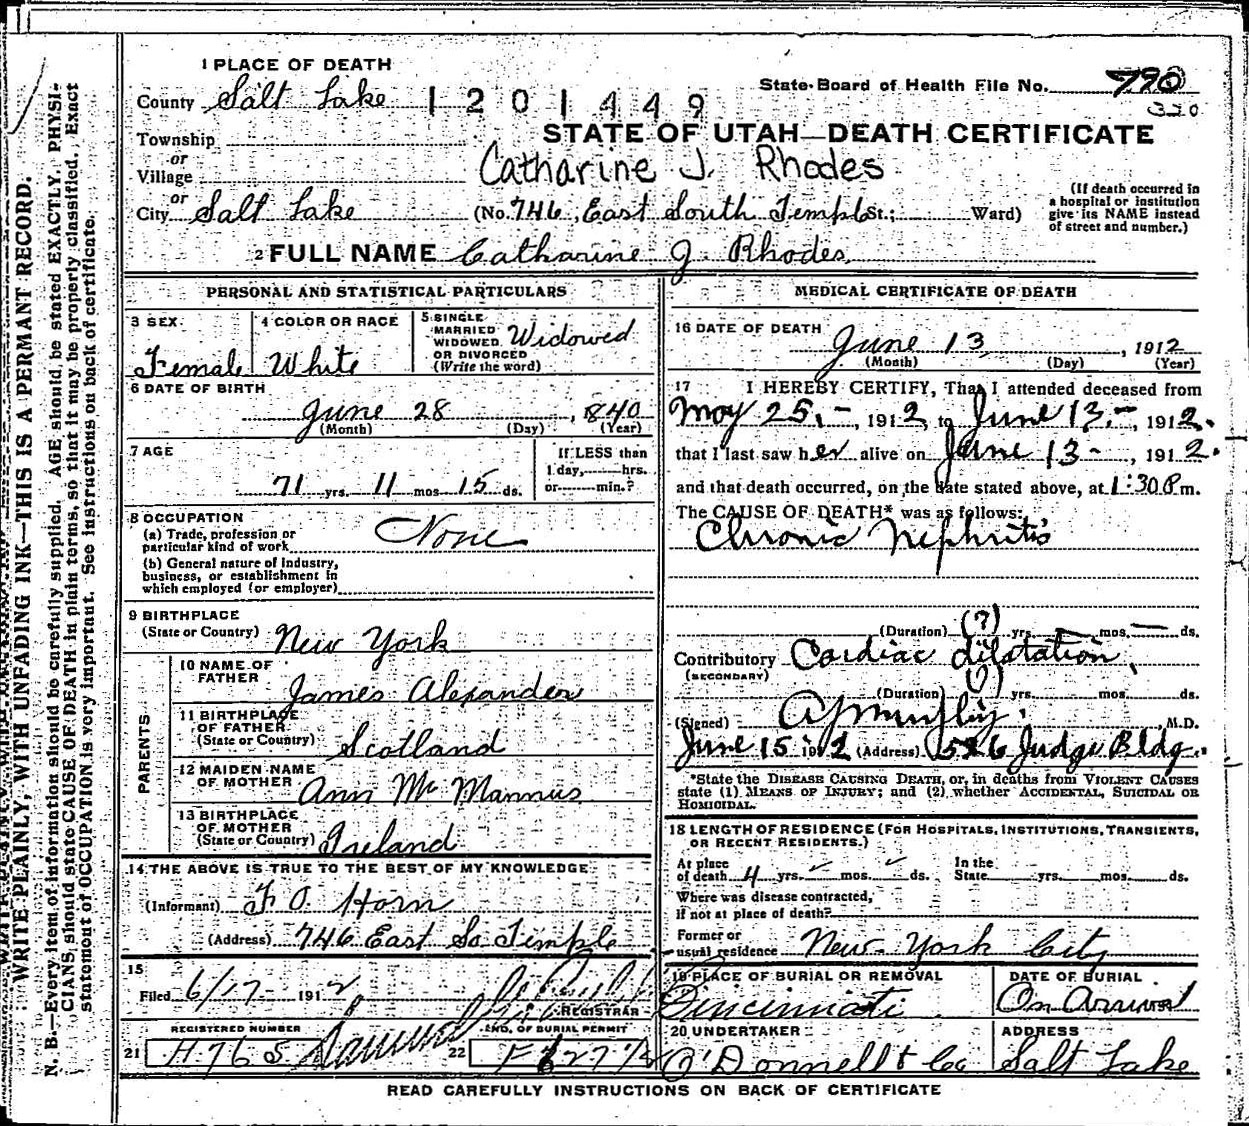 1 PLACE OF DEATH
County Salt Lake 1201449
State Board of Health File No. 790
320
STATE OF UTAH—DEATH CERTIFICATE
Township
or
Village
Catharine J. Rhodes
or
City Salt Lake (No. 746, East South Temple St.; Ward)
(If death occurred in a hospital or institution give its NAME instead of street and number.)
2 FULL NAME Catharine J. Rhodes
PERSONAL AND STATISTICAL PARTICULARS
3 SEX Female
4 COLOR OR RACE White
5 SINGLE MARRIED WIDOWED OR DIVORCED (Write the word) Widowed
6 DATE OF BIRTH
June 28, 1840
(Month) (Day) (Year)
7 AGE
71 yrs. 11 mos. 15 ds.
If LESS than 1 day, hrs. or min.?
8 OCCUPATION
(a) Trade, profession or particular kind of work None
(b) General nature of industry, business, or establishment in which employed (or employer)
9 BIRTHPLACE
(State or Country) New York
PARENTS
10 NAME OF FATHER James Alexander
11 BIRTHPLACE OF FATHER (State or Country) Scotland
12 MAIDEN NAME OF MOTHER Ann McMannus
13 BIRTHPLACE OF MOTHER (State or Country) Ireland
14 THE ABOVE IS TRUE TO THE BEST OF MY KNOWLEDGE
(Informant) F. O. Horn
(Address) 746 East So Temple
15
Filed 6/17 1912
REGISTRAR
REGISTERED NUMBER
21 H 76 S
NO. OF BURIAL PERMIT
22
MEDICAL CERTIFICATE OF DEATH
16 DATE OF DEATH
June 13, 1912
(Month) (Day) (Year)
17 I HEREBY CERTIFY, That I attended deceased from
May 25, 1912, to June 13, 1912.
that I last saw her alive on June 13, 1912.
and that death occurred, on the date stated above, at 1:30 P m.
The CAUSE OF DEATH* was as follows:
Chronic Nephritis
(Duration) (?) yrs. mos. ds.
Contributory Cardiac dilatation,
(SECONDARY)
(Duration) (?) yrs. mos. ds.
(Signed) M.D.
June 15 1912 (Address) 526 Judge Bldg.
*State the DISEASE CAUSING DEATH, or, in deaths from VIOLENT CAUSES
state (1) MEANS OF INJURY; and (2) whether ACCIDENTAL, SUICIDAL OR
HOMICIDAL.
18 LENGTH OF RESIDENCE (FOR HOSPITALS, INSTITUTIONS, TRANSIENTS,
OR RECENT RESIDENTS.)
At place of death 4 yrs. mos. ds. In the State yrs. mos. ds.
Where was disease contracted,
if not at place of death?
Former or usual residence New York City
19 PLACE OF BURIAL OR REMOVAL
Cincinnati
DATE OF BURIAL
On Arrival
20 UNDERTAKER
O'Donnell & Co
ADDRESS
Salt Lake
READ CAREFULLY INSTRUCTIONS ON BACK OF CERTIFICATE
WRITE PLAINLY, WITH UNFADING INK—THIS IS A PERMANT RECORD.
N. B.—Every item of information should be carefully supplied. AGE should be stated EXACTLY. PHYSI-
CIANS should state CAUSE OF DEATH in plain terms, so that it may be properly classified. Exact
statement of OCCUPATION is very important. See instructions on back of certificate.